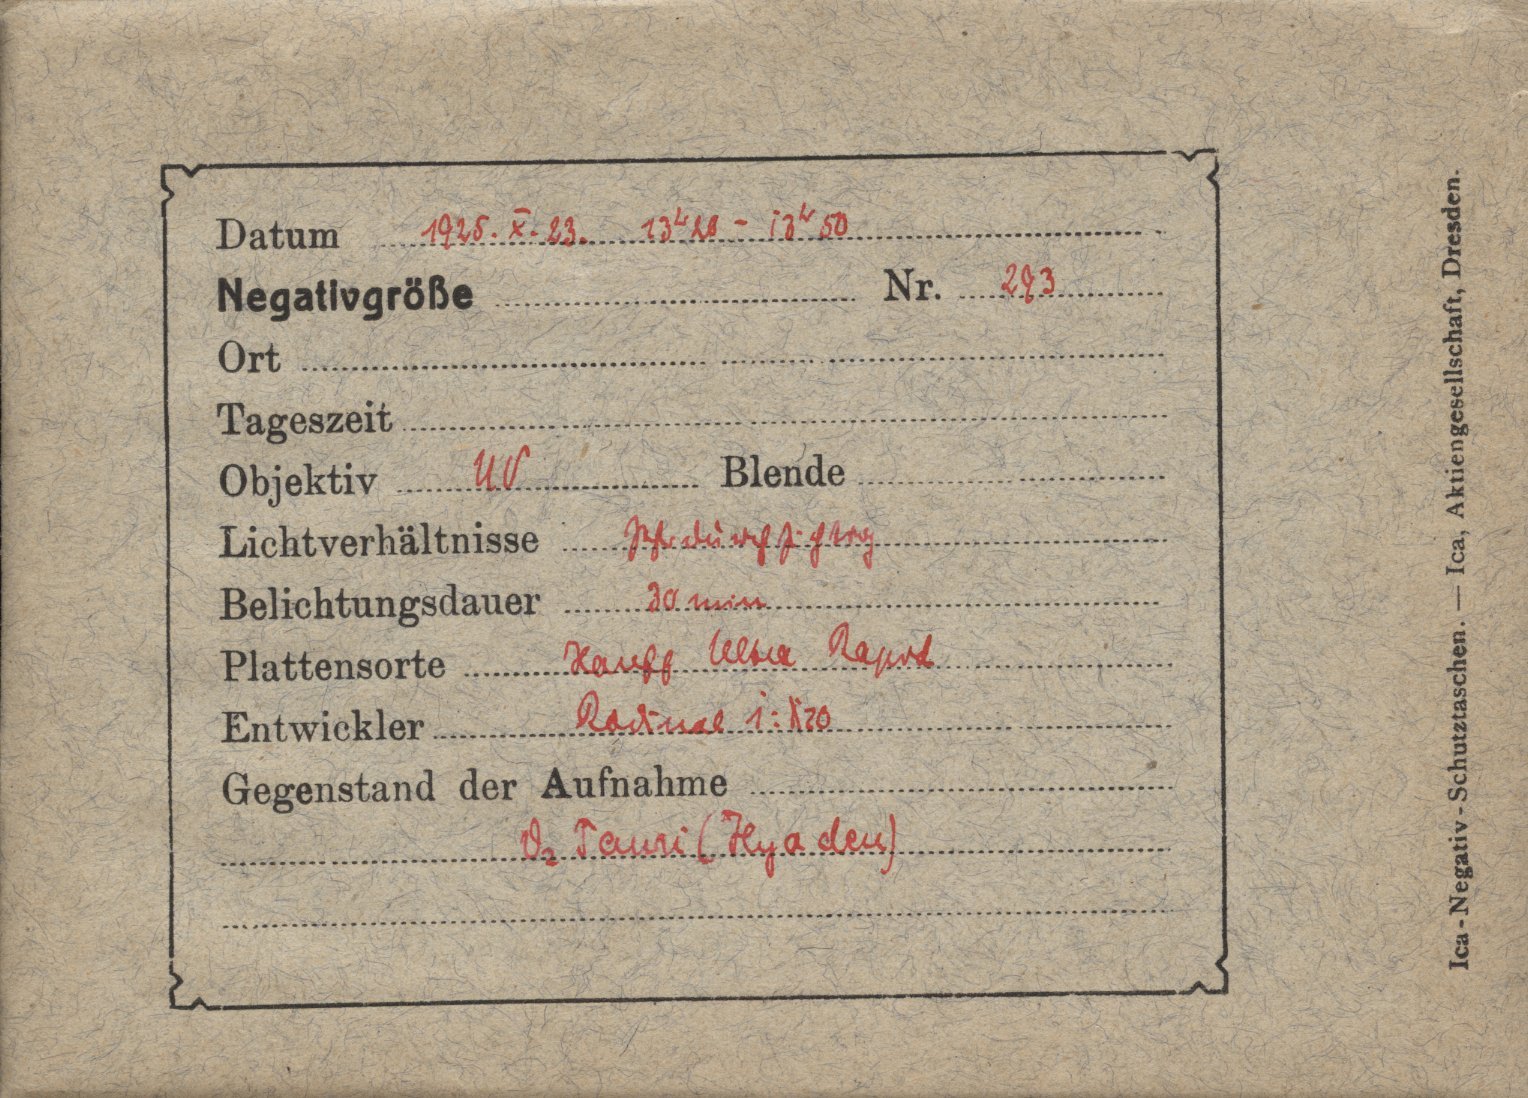 Datum 1925. X. 23. 13h 20 - 13h 50
Negativgröße Nr. 293
Ort
Tageszeit
Objektiv UV Blende
Lichtverhältnisse sehr durchsichtig
Belichtungsdauer 30 min
Plattensorte Hauff Ultra Rapid
Entwickler Rodinal 1:20
Gegenstand der Aufnahme
ϑ2 Tauri (Hyaden)
Ica-Negativ-Schutztaschen. — Ica, Aktiengesellschaft, Dresden.